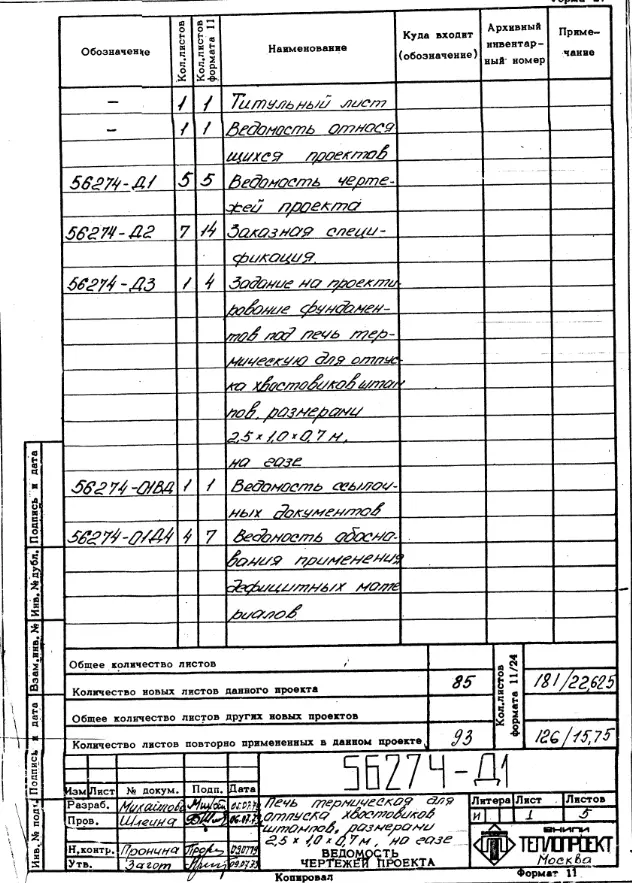 Обозначение Кол.листов Кол.листов формата 11 Наименование Куда входит (обозначение) Архивный инвентарный номер Примечание
– 1 1 Титульный лист
– 1 1 Ведомость относя
щихся проектов
56274-Д1 5 5 Ведомость черте-
жей проекта
56274-Д2 7 14 Заказная специ-
фикация.
56274-Д3 1 4 Задание на проекти
рование фундамен-
тов под печь тер-
мическую для отпус-
ка хвостовиков штам
пов, размерами
2,5 × 1,0 × 0,7 м,
на газе
56274-01ВД 1 1 Ведомость ссылоч-
ных документов
56274-01Д4 4 7 Ведомость обосно-
вания применения
дефицитных мате
риалов
Общее количество листов
Количество новых листов данного проекта 85 Кол.листов формата 11/24 181/22,625
Общее количество листов других новых проектов
Количество листов повторно примененных в данном проекте 93 126/15,75
Подпись и дата
Инв. № дубл.
Взам.инв. №
Подпись и дата
Инв. № подл.
56274-Д1
Изм Лист № докум. Подп. Дата
Разраб. Михайлова
Пров. Шлеина
Н.контр. Пронина
Утв. Загот
Печь термическая для
отпуска хвостовиков
штампов, размерами
2,5 × 1,0 × 0,7 м, на газе
ВЕДОМОСТЬ
ЧЕРТЕЖЕЙ ПРОЕКТА
Литера Лист Листов
И 1 5
ВНИПИ
ТЕПЛОПРОЕКТ
Москва
Копировал Формат 11